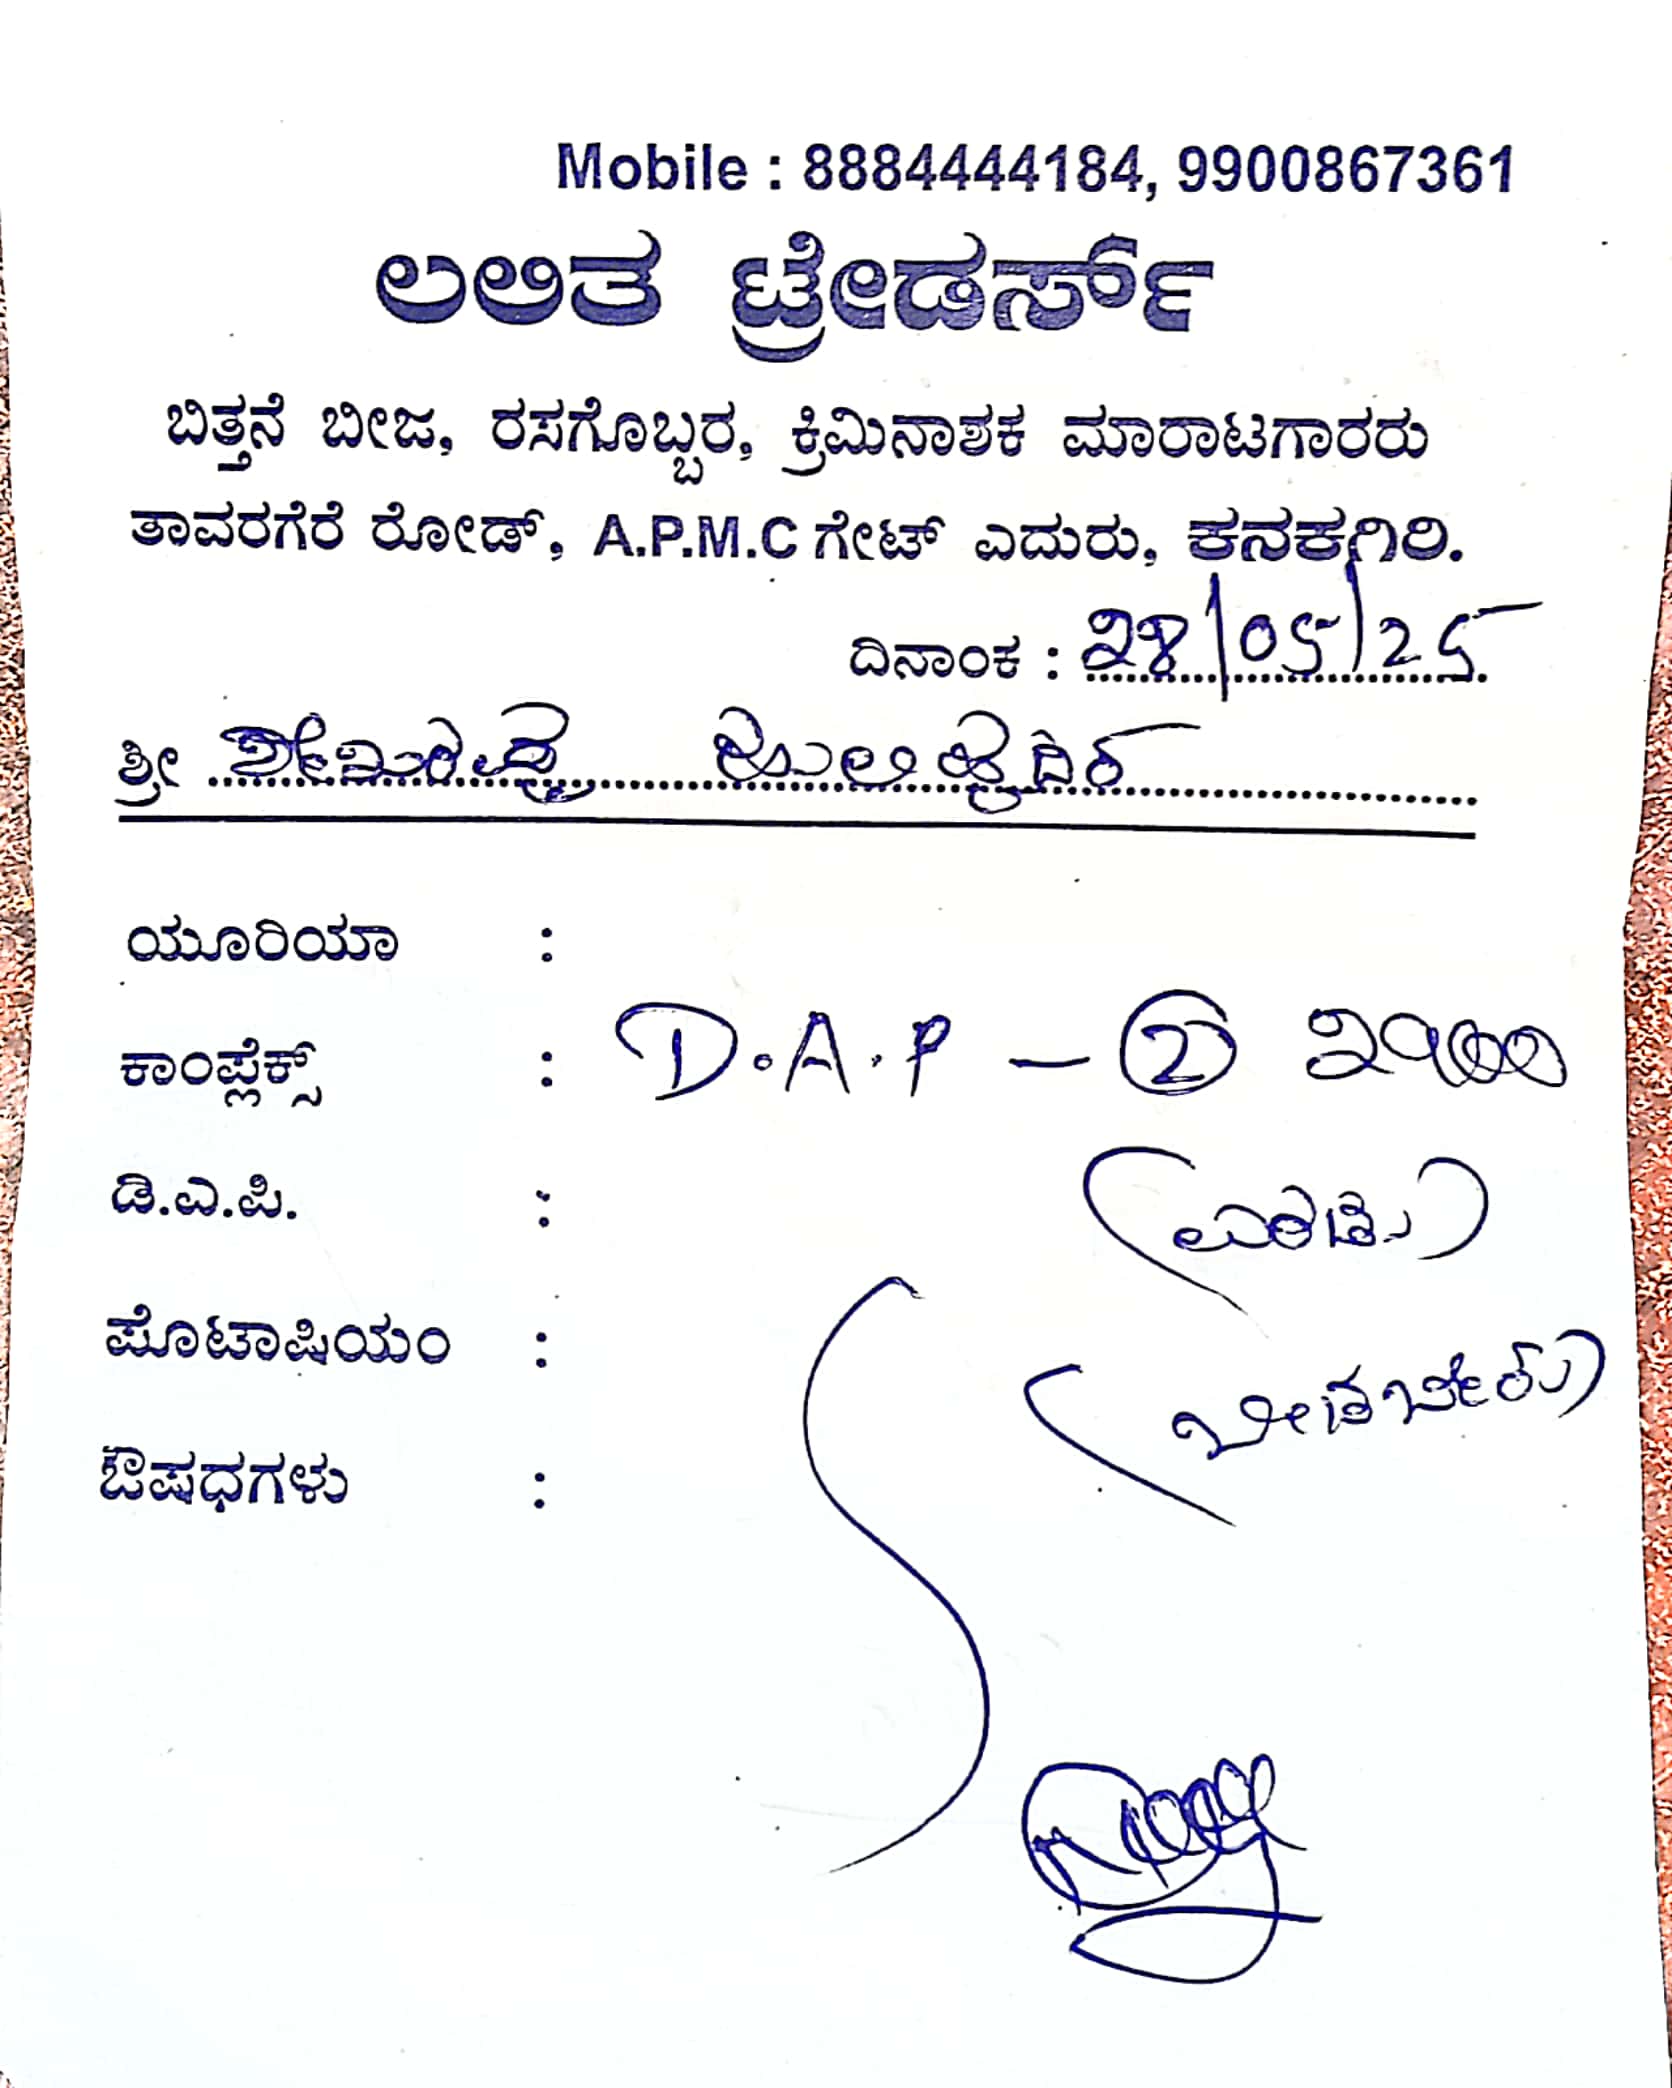 Mobile : 8884444184, 9900867361
ಲಲಿತ ಟ್ರೇಡರ್ಸ್
ಬಿತ್ತನೆ ಬೀಜ, ರಸಗೊಬ್ಬರ, ಕ್ರಿಮಿನಾಶಕ ಮಾರಾಟಗಾರರು
ತಾವರಗೆರೆ ರೋಡ್, A.P.M.C ಗೇಟ್ ಎದುರು, ಕನಕಗಿರಿ.
ದಿನಾಂಕ : 28/05/25
ಶ್ರೀ
ಯೂರಿಯಾ :
ಕಾಂಪ್ಲೆಕ್ಸ್ : D.A.P - 2
ಡಿ.ಎ.ಪಿ. : (ಎರಡು)
ಪೊಟಾಷಿಯಂ :
ಔಷಧಗಳು :